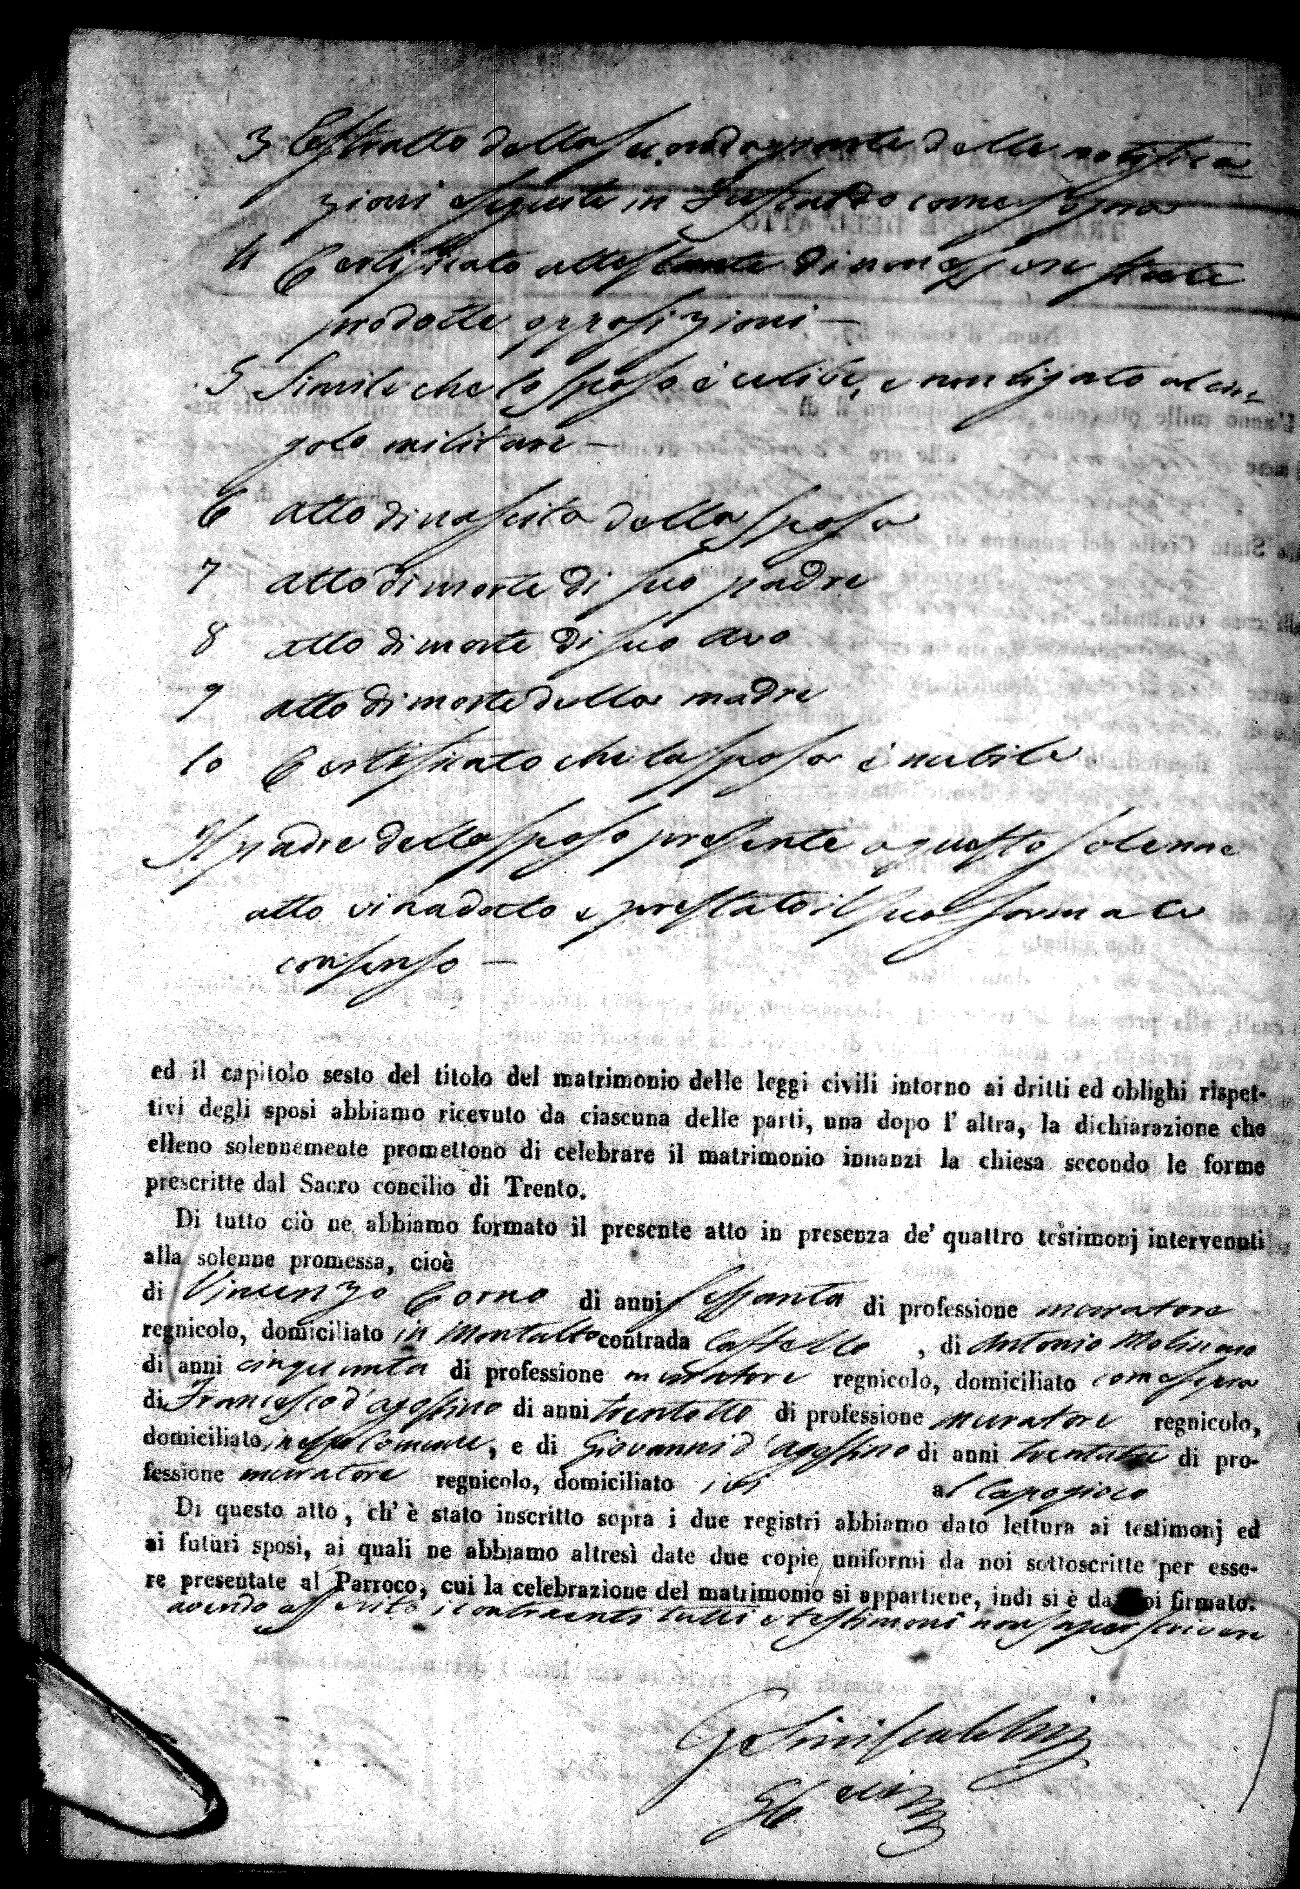 3 Estratto della seconda parte delle notifica
zioni eseguite in Fuscaldo come sopra
4 Certificato attestante di non essere state
prodotte opposizioni —
5 Simile che lo sposo è celibe, e non ligato al cin=
golo militare —
6 atto di nascita della sposa
7 atto di morte di suo padre
8 atto di morte di suo avo
9 atto di morte della madre
10 Certificato che la sposa è nubile
Il padre dello sposo presente a questo solenne
atto vi ha dato e prestato il suo formale
consenso —
ed il capitolo sesto del titolo del matrimonio delle leggi civili intorno ai dritti ed oblighi rispet-
tivi degli sposi abbiamo ricevuto da ciascuna delle parti, una dopo l' altra, la dichiarazione che
elleno solennemente promettono di celebrare il matrimonio innanzi la chiesa secondo le forme
prescritte dal Sacro concilio di Trento.
Di tutto ciò ne abbiamo formato il presente atto in presenza de' quattro testimonj intervenuti
alla solenne promessa, cioè
di Vincenzo Corno di anni sessanta di professione muratore
regnicolo, domiciliato in Montalto contrada Castello , di Antonio Molinaro
di anni cinquanta di professione muratore regnicolo, domiciliato come sopra
di Francesco d'agostino di anni trentotto di professione muratore regnicolo,
domiciliato, nesso Comune, e di Giovanni d'agostino di anni trentatre di pro-
fessione muratore regnicolo, domiciliato ivi al
Di questo atto, ch' è stato inscritto sopra i due registri abbiamo dato lettura ai testimonj ed
ai futuri sposi, ai quali ne abbiamo altresì date due copie uniformi da noi sottoscritte per esse-
re presentate al Parroco, cui la celebrazione del matrimonio si appartiene, indi si è da noi firmato.
avendo asserito i contraenti tutti e testimoni non saper scrivere